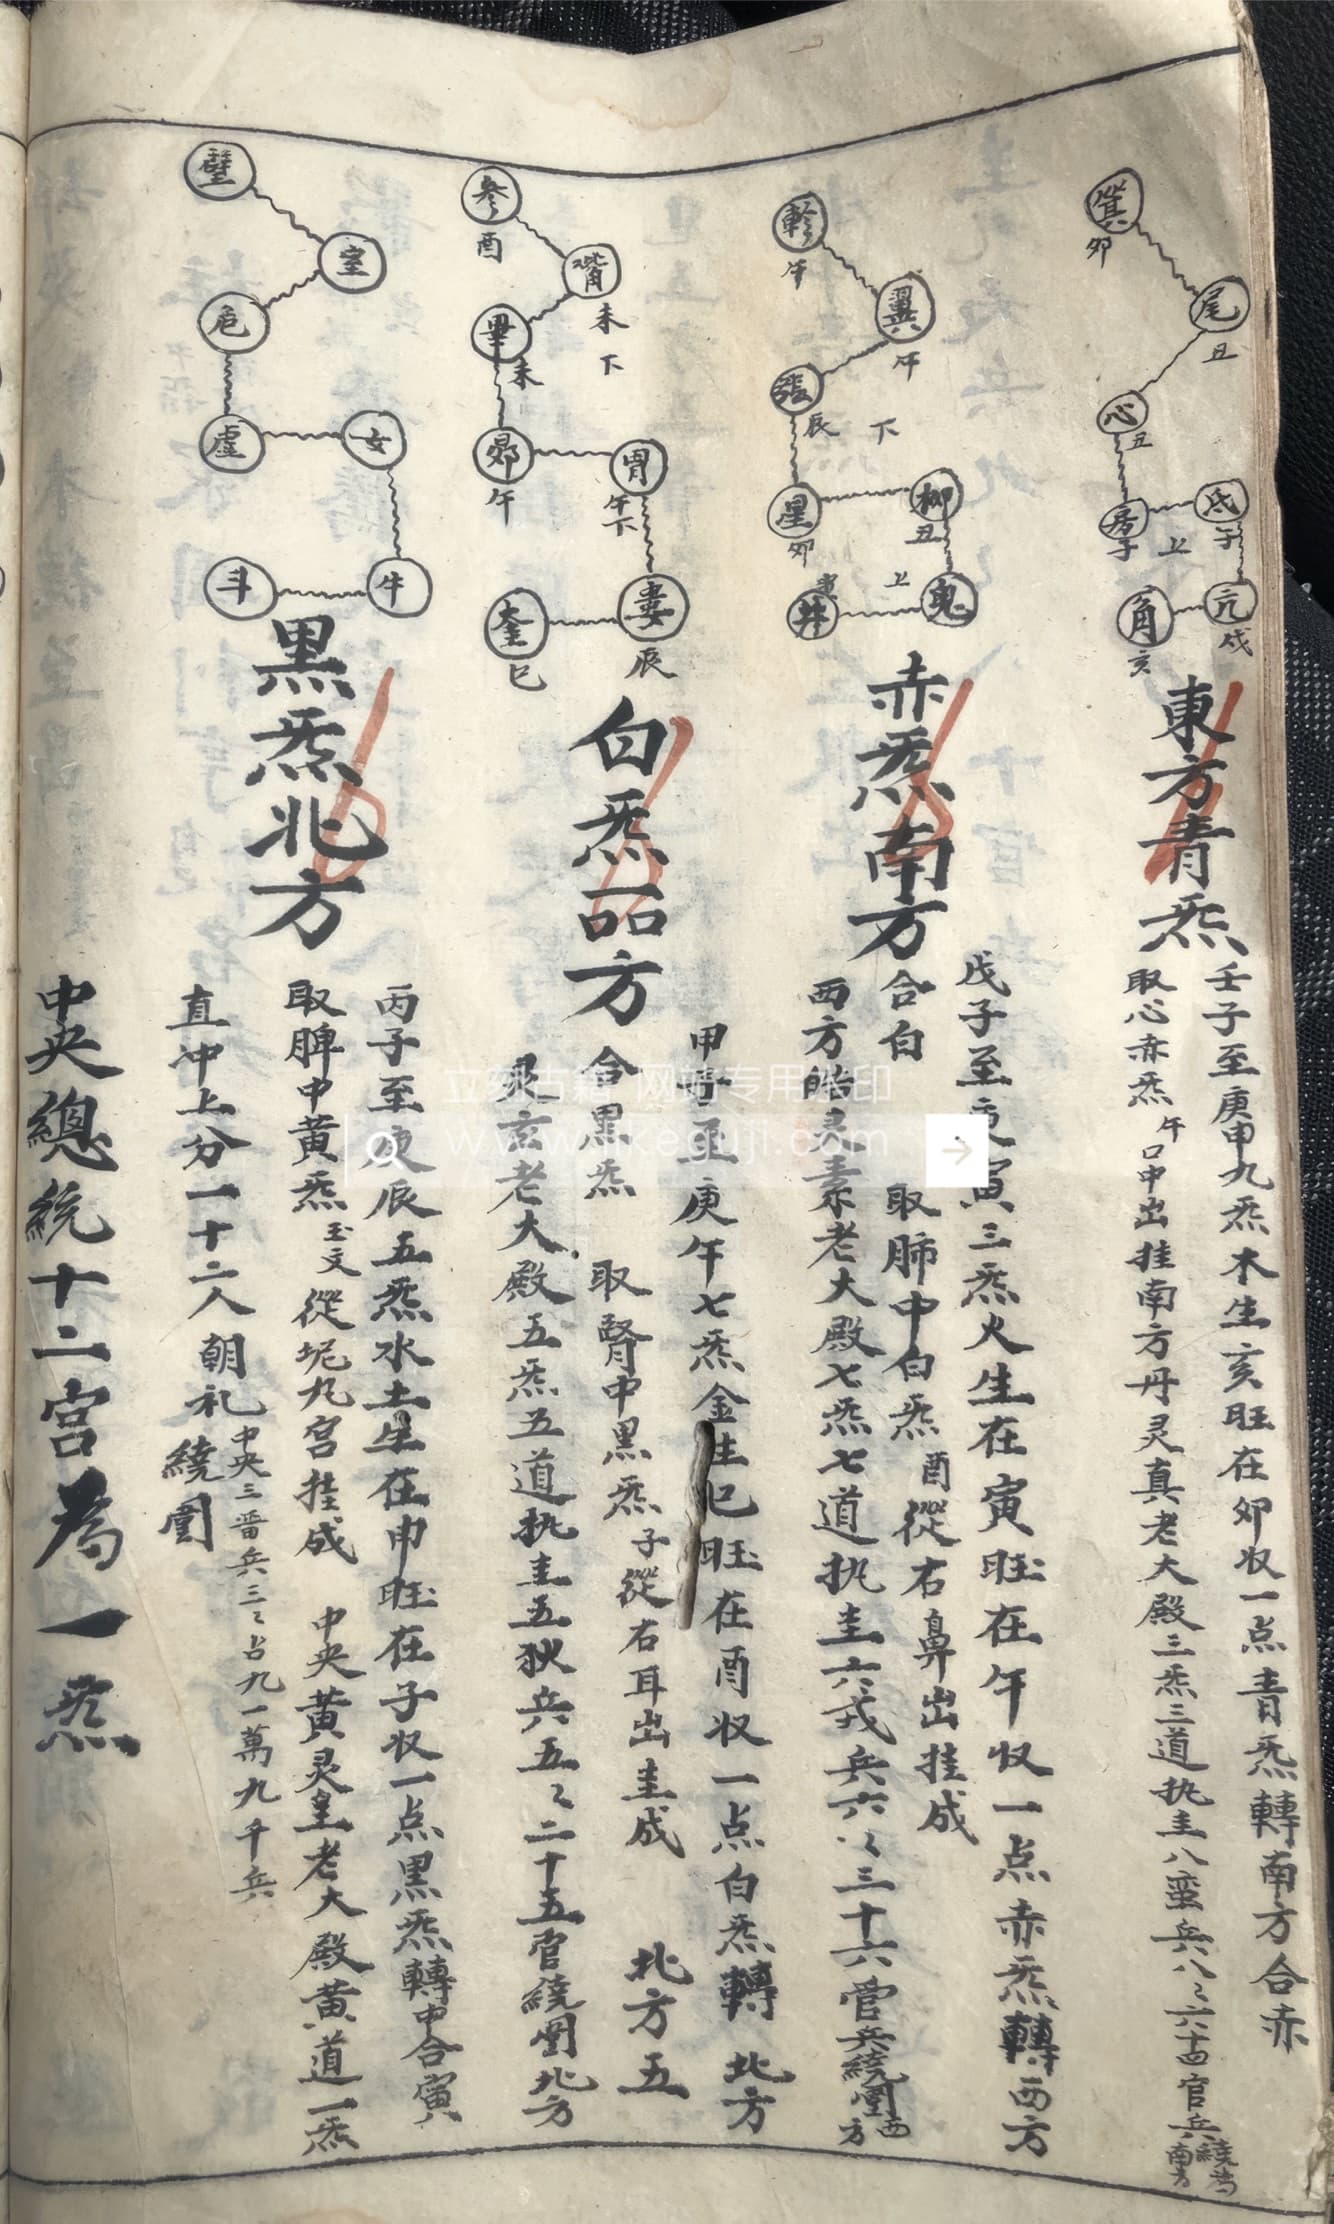 箕
卯
尾
丑
心
丑
房
子
上
氐
午
角
亥
亢
戌
東方青炁
壬子至庚申九炁木生亥旺在卯収一点青炁轉南方合赤
取心赤炁午口中出挂南方丹灵真老大殿三炁三道执圭八蛮兵八〻六十四官兵繞
南方
軫
午
翼
午
張
辰
下
星
卯
柳
丑
井
上
鬼
赤炁南方
戊子至庚寅三炁火生在寅旺在午収一点赤炁轉西方
合白 取肺中白炁酉從右鼻出挂成
西方皓灵素老大殿七炁七道执圭六戎兵六〻三十六營兵繞圍西
方
參
酉
觜
未
下
畢
未
昴
午
胃
午
下
奎
巳
婁
辰
白炁西方
甲子至庚午七炁金生巳旺在酉収一点白炁轉 北方
合黒炁 取腎中黒炁子從右耳出圭成 北方五
灵玄老大殿五炁五道执圭五狄兵五〻二十五官繞圍北方
壁
室
危
虛
女
斗
牛
黒炁北方
丙子至庚辰五炁水土生在申旺在子収一点黒炁轉中合寅
取脾中黄炁玉文從坭丸宮挂成 中央黄灵皇老大殿黄道一炁
直冲上分一十二人朝礼 中央三晋兵三〻占九一萬九千兵
繞圍
中央總統十二宮為一炁
立刻古籍 网站专用水印
www.likeguji.com